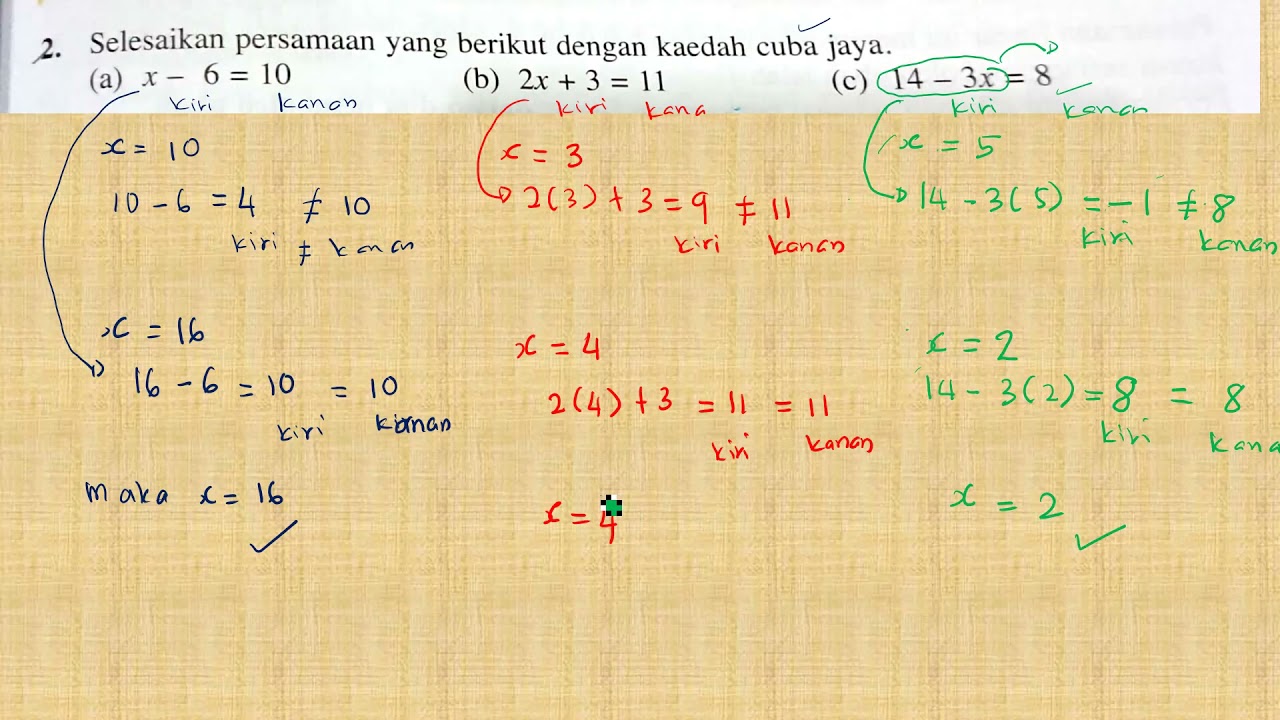 2. Selesaikan persamaan yang berikut dengan kaedah cuba jaya.
(a) x − 6 = 10 (b) 2x + 3 = 11 (c) 14 − 3x = 8
kiri kanan kiri kana kiri kanan
x = 10 x = 3 x = 5
10 − 6 = 4 ≠ 10 2(3) + 3 = 9 ≠ 11 14 − 3(5) = −1 ≠ 8
kiri ≠ kanan kiri kanan kiri kanan
x = 16 x = 4 x = 2
16 − 6 = 10 = 10 2(4) + 3 = 11 = 11 14 − 3(2) = 8 = 8
kiri kanan kiri kanan kiri kana
maka x = 16 x = 4 x = 2